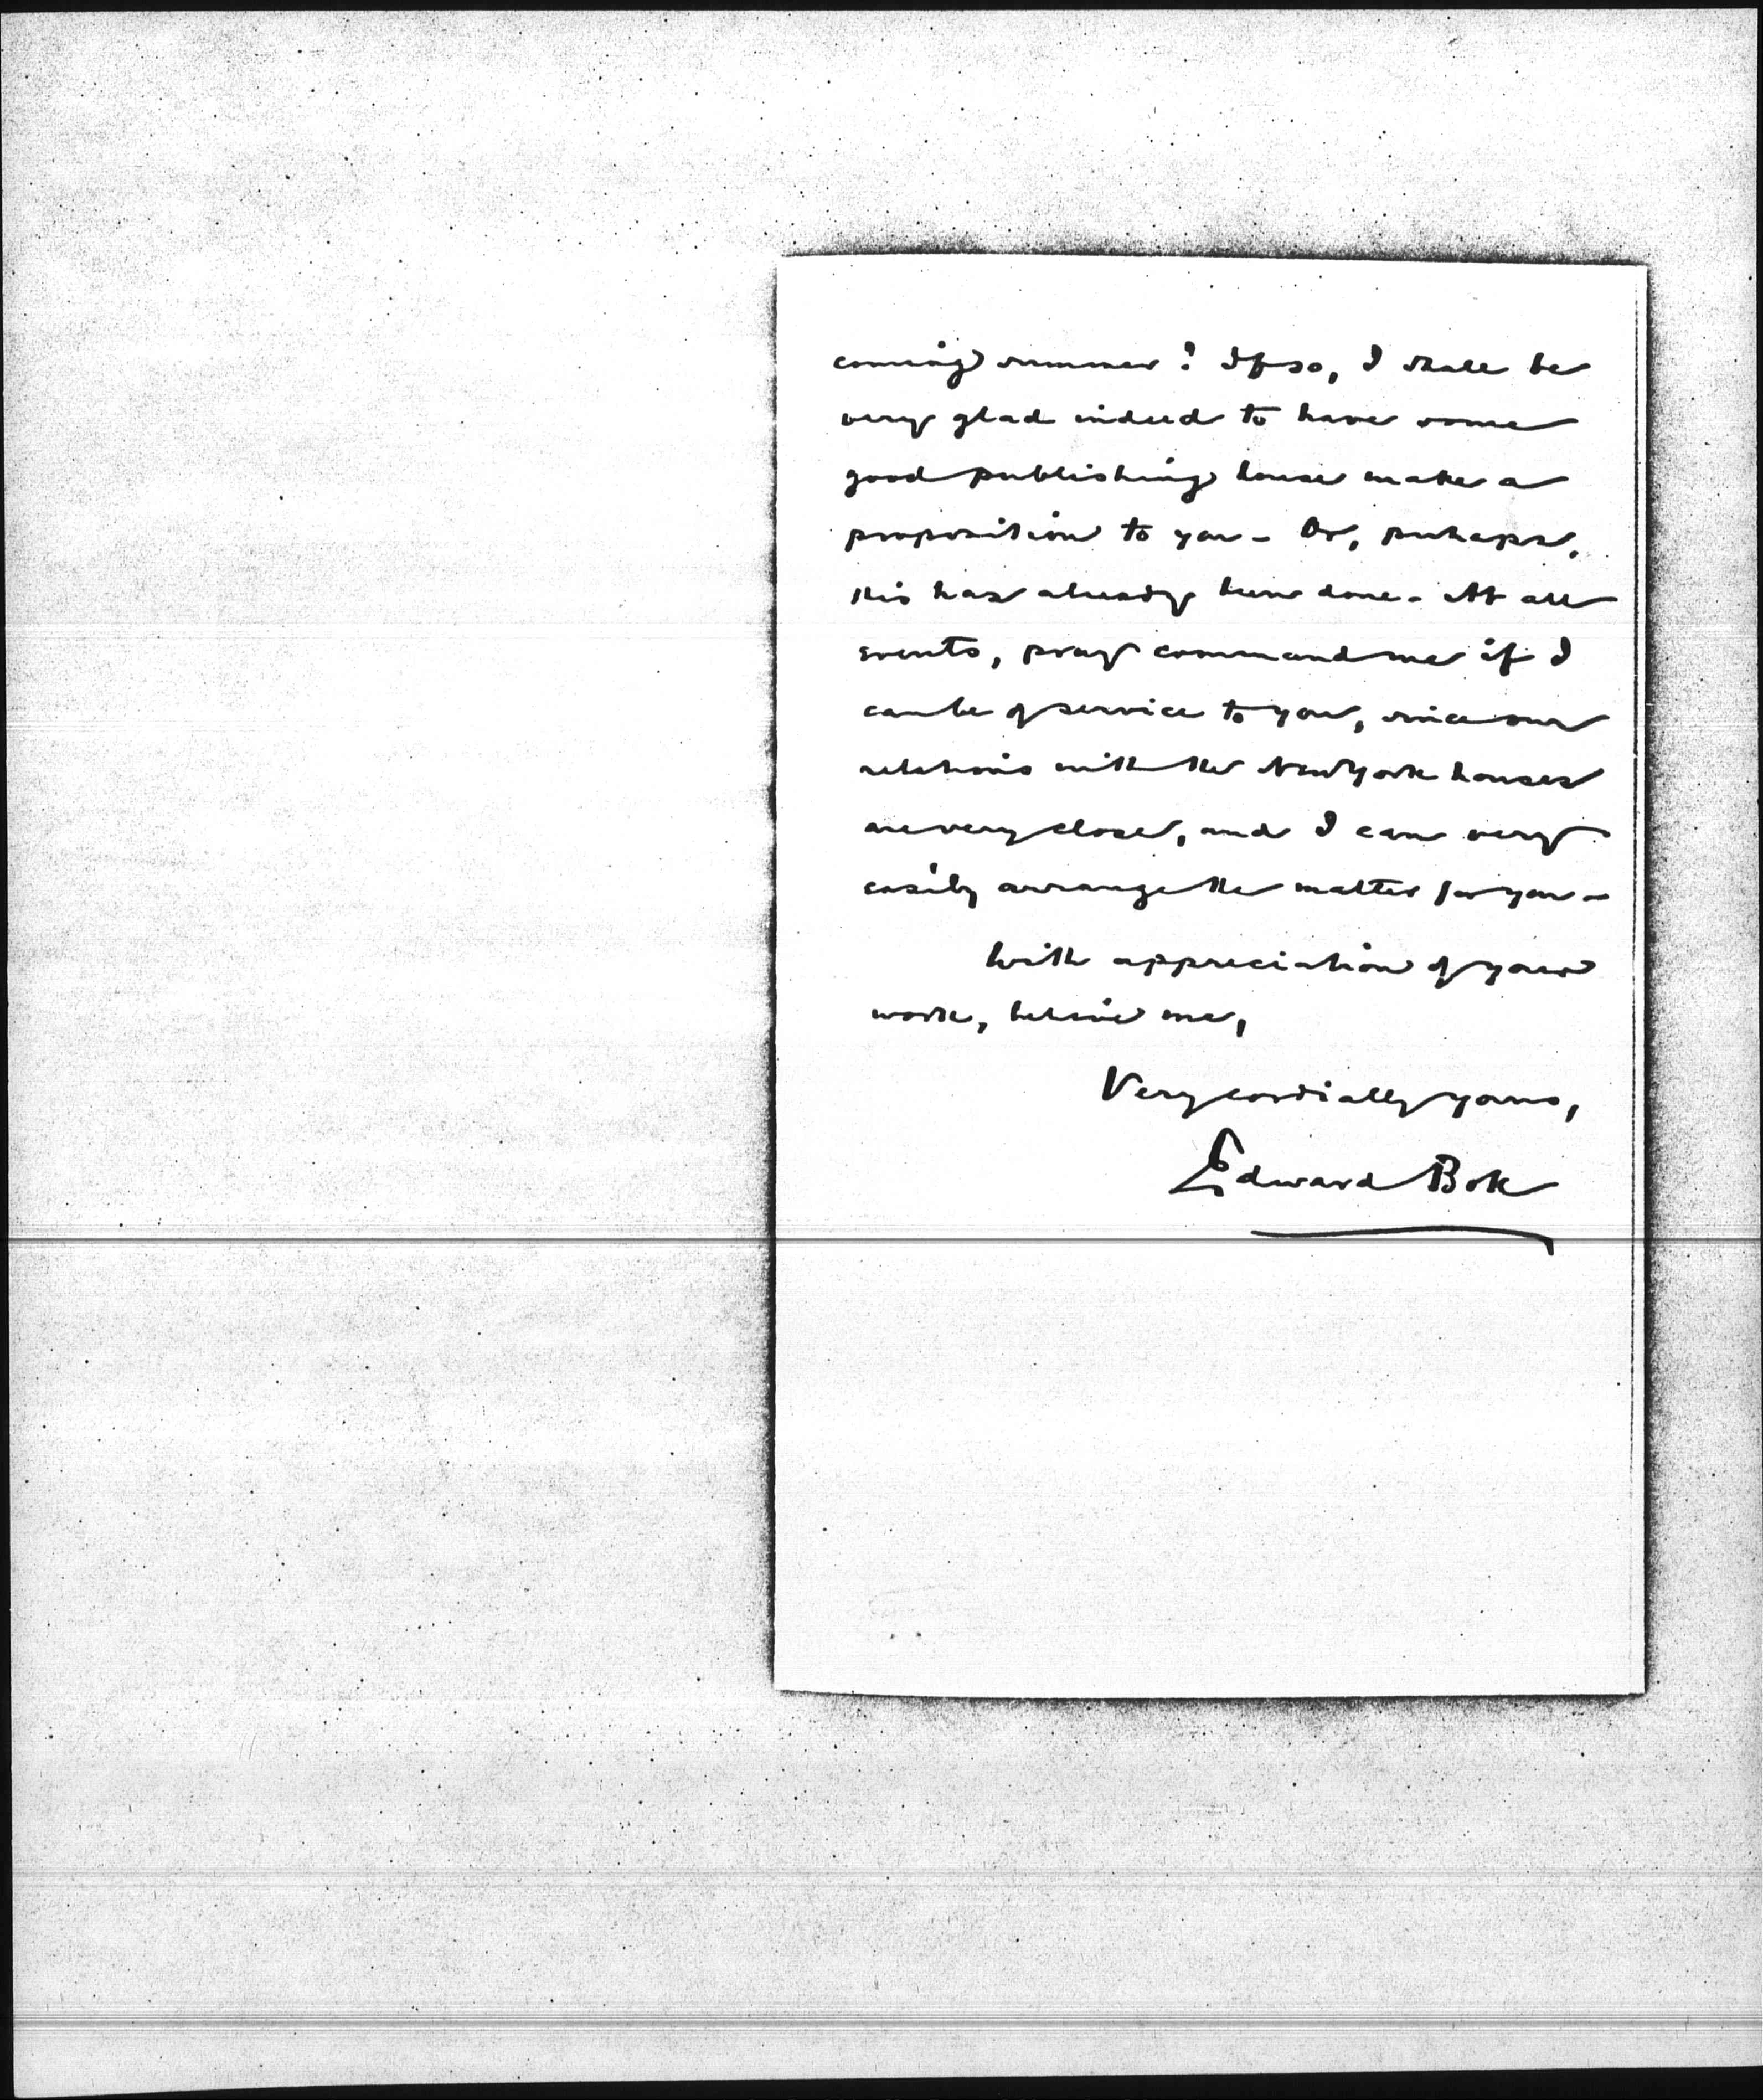 coming summer? If so, I shall be
very glad indeed to have some
good publishing house make a
proposition to you - Or, perhaps,
this has already been done - At all
events, pray command me if I
can be of service to you, since our
relations with the New York houses
are very close, and I can very
easily arrange the matter for you -
With appreciation of your
work, believe me,
Very cordially yours,
Edward Bok